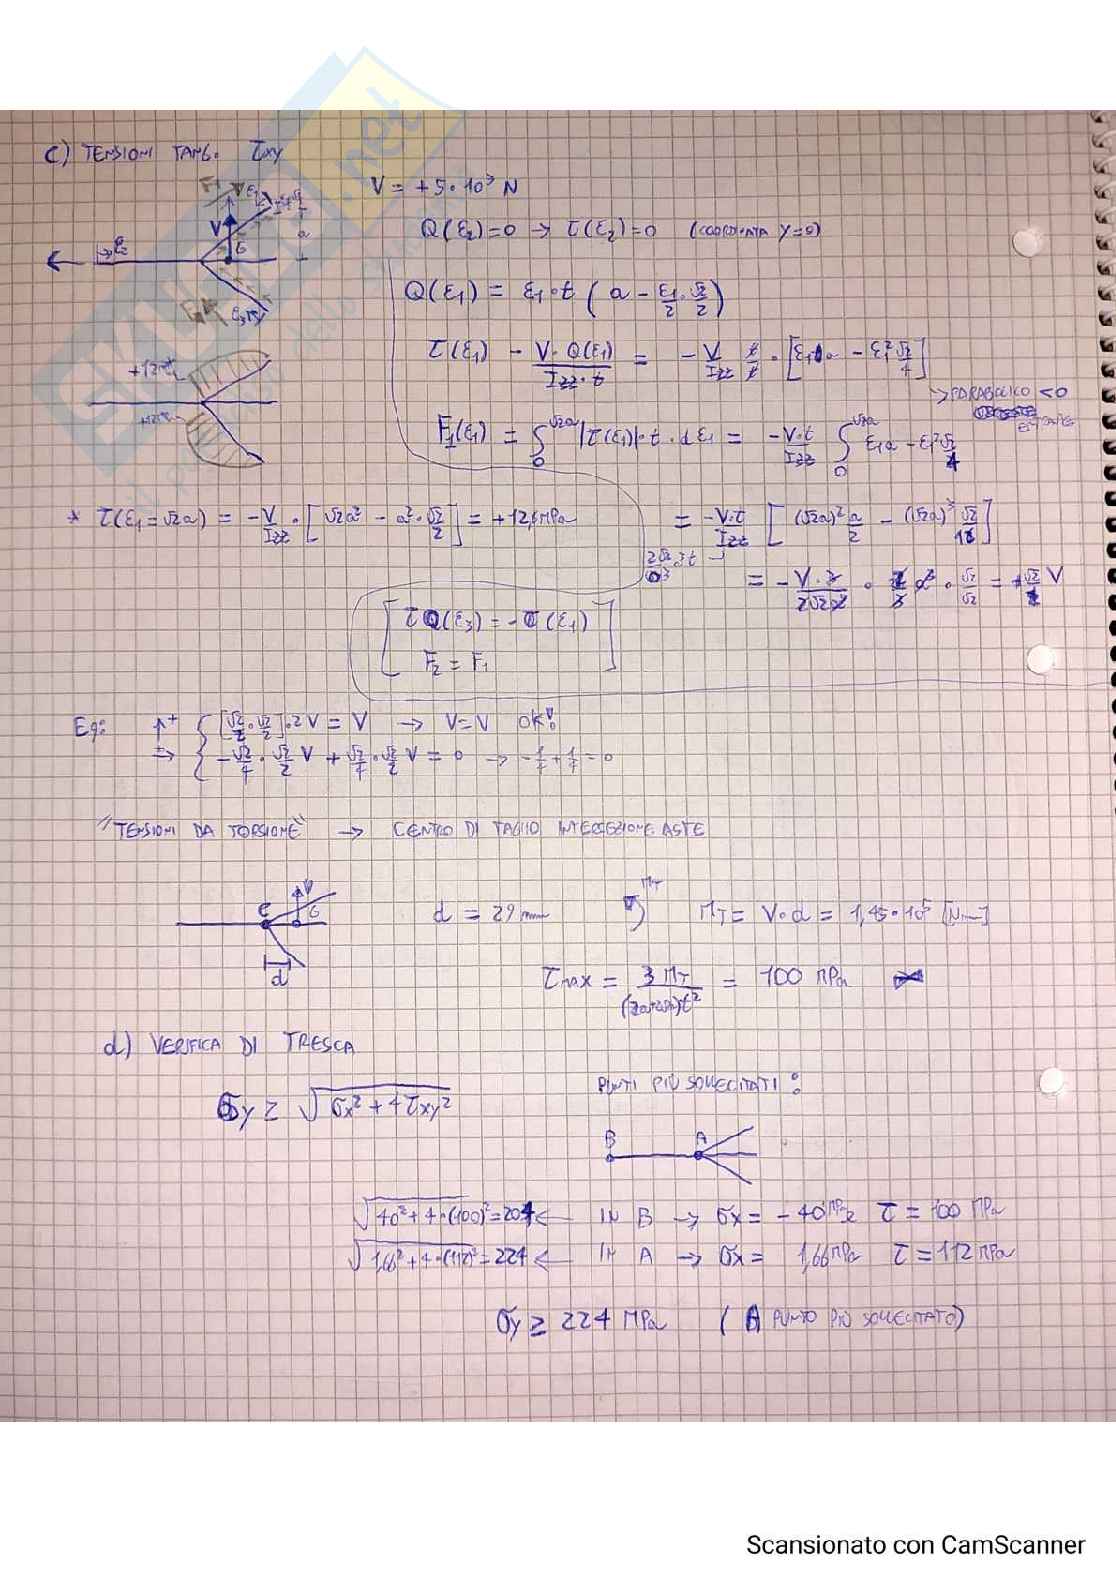 C) TENSIONI TANG. τxy
V = +5·10³ N
Q(ξ2)=0 → τ(ξ2)=0 (coordinata y=0)
Q(ξ1) = ξ1·t ( a - ξ1/2 · √2/2 )
τ(ξ1) - V·Q(ξ1)/Izz·t = -V/Izz t/t · [ξ1 a - ξ1² √2/4]
→ PARABOLICO <0
F1(ξ1) = ∫0^√2a |τ(ξ1)|·t·dξ1 = -V·t/Izz ∫0^√2a ξ1a - ξ1²√2/4
* τ(ξ1=√2a) = -V/Izz · [√2a² - a²·√2/2] = +12,6 MPa
= -V·t/Izz [(√2a)² a/2 - (√2a)³ √2/12]
[ τ(ξ3) = -τ(ξ1)
F2 = F1 ]
Eq: ↑+ { [√2/2·√2/2]·2V = V → V=V OK!
⇒ { -√2/4·√2/2 V + √2/4·√2/2 V = 0 → -1/4+1/4=0
"TENSIONI DA TORSIONE" → CENTRO DI TAGLIO INTERSEZIONE ASTE
C V G
d
d = 29 mm
MT
MT = V·d = 1,45·10⁵ [Nmm]
τmax = 3 MT / t² = 100 MPa
d) VERIFICA DI TRESCA
σy ≥ √σx² + 4τxy²
PUNTI PIÙ SOLLECITATI:
B A
√40²+4·(100)²=204 ← IN B → σx = -40 MPa τ = 100 MPa
√1,66²+4·(112)²=224 ← IN A → σx = 1,66 MPa τ = 112 MPa
σy ≥ 224 MPa (A PUNTO PIÙ SOLLECITATO)
Scansionato con CamScanner